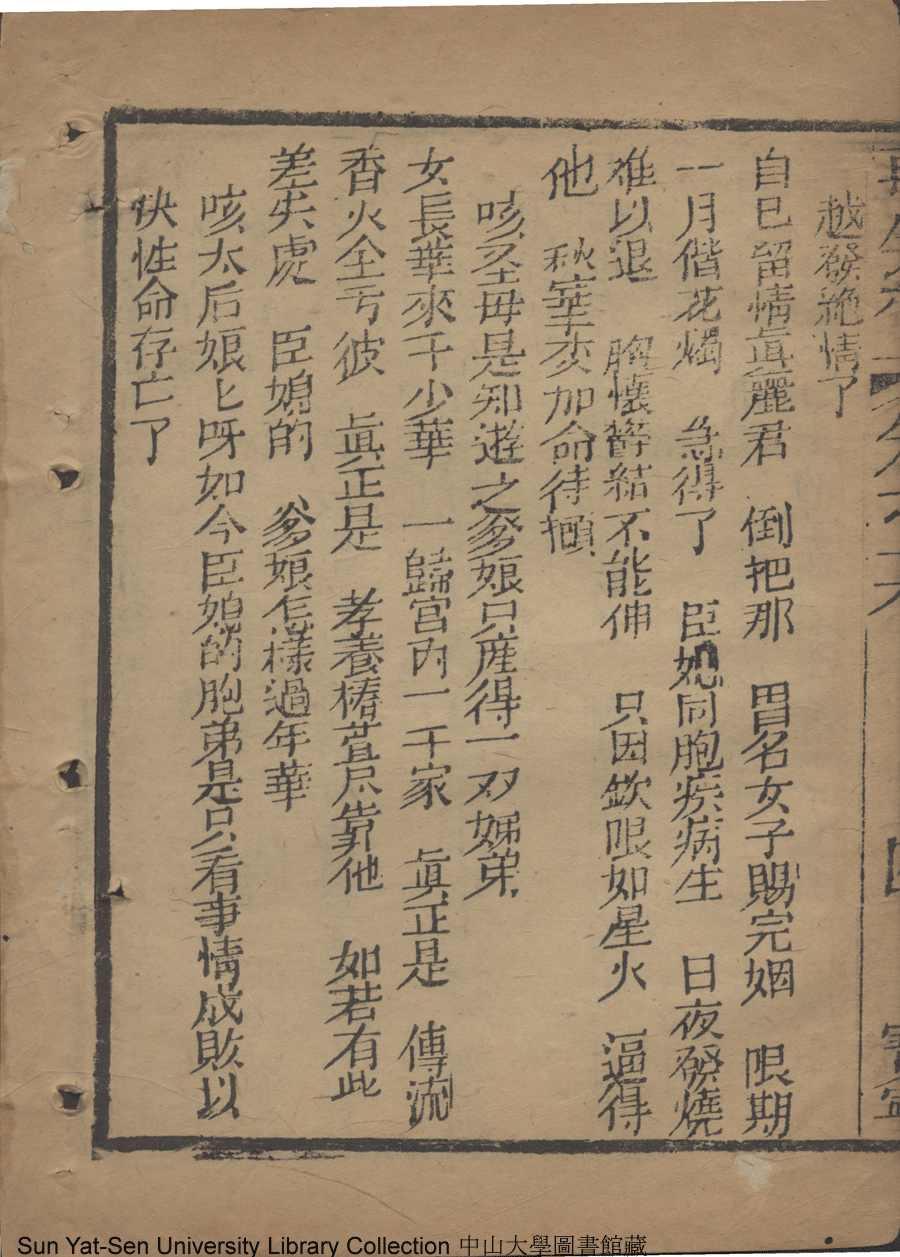 越發絶情了
自已留情真麗君　倒把那　冒名女子賜完姻　限期
一月偕花燭　急得了　臣媳同胞疾病生　日夜發燒
难以退　胸懷欝結不能伸　只因欽限如星火　逼得
他　秋華交加命待頋
咳圣毋是知道之爹娘只産得一双姊弟
女長華來子少華　一歸宫内一千家　真正是　傳流
香火全亏彼　真正是　孝養椿萱只靠他　如若有此
差失處　臣媳的　爹娘怎樣過年華
咳太后娘匕呀如今臣媳的胞弟是只看事情成敗以
快性命存亡了
Sun Yat-Sen University Library Collection 中山大學圖書館藏